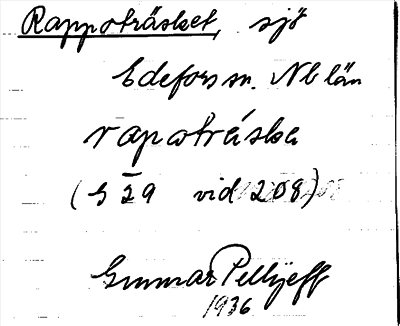 Rappoträsket, sjö
Edefors sn. Nb län
rapoträska
(G I9 vid 208)
Gunnar Pellijeff
1936